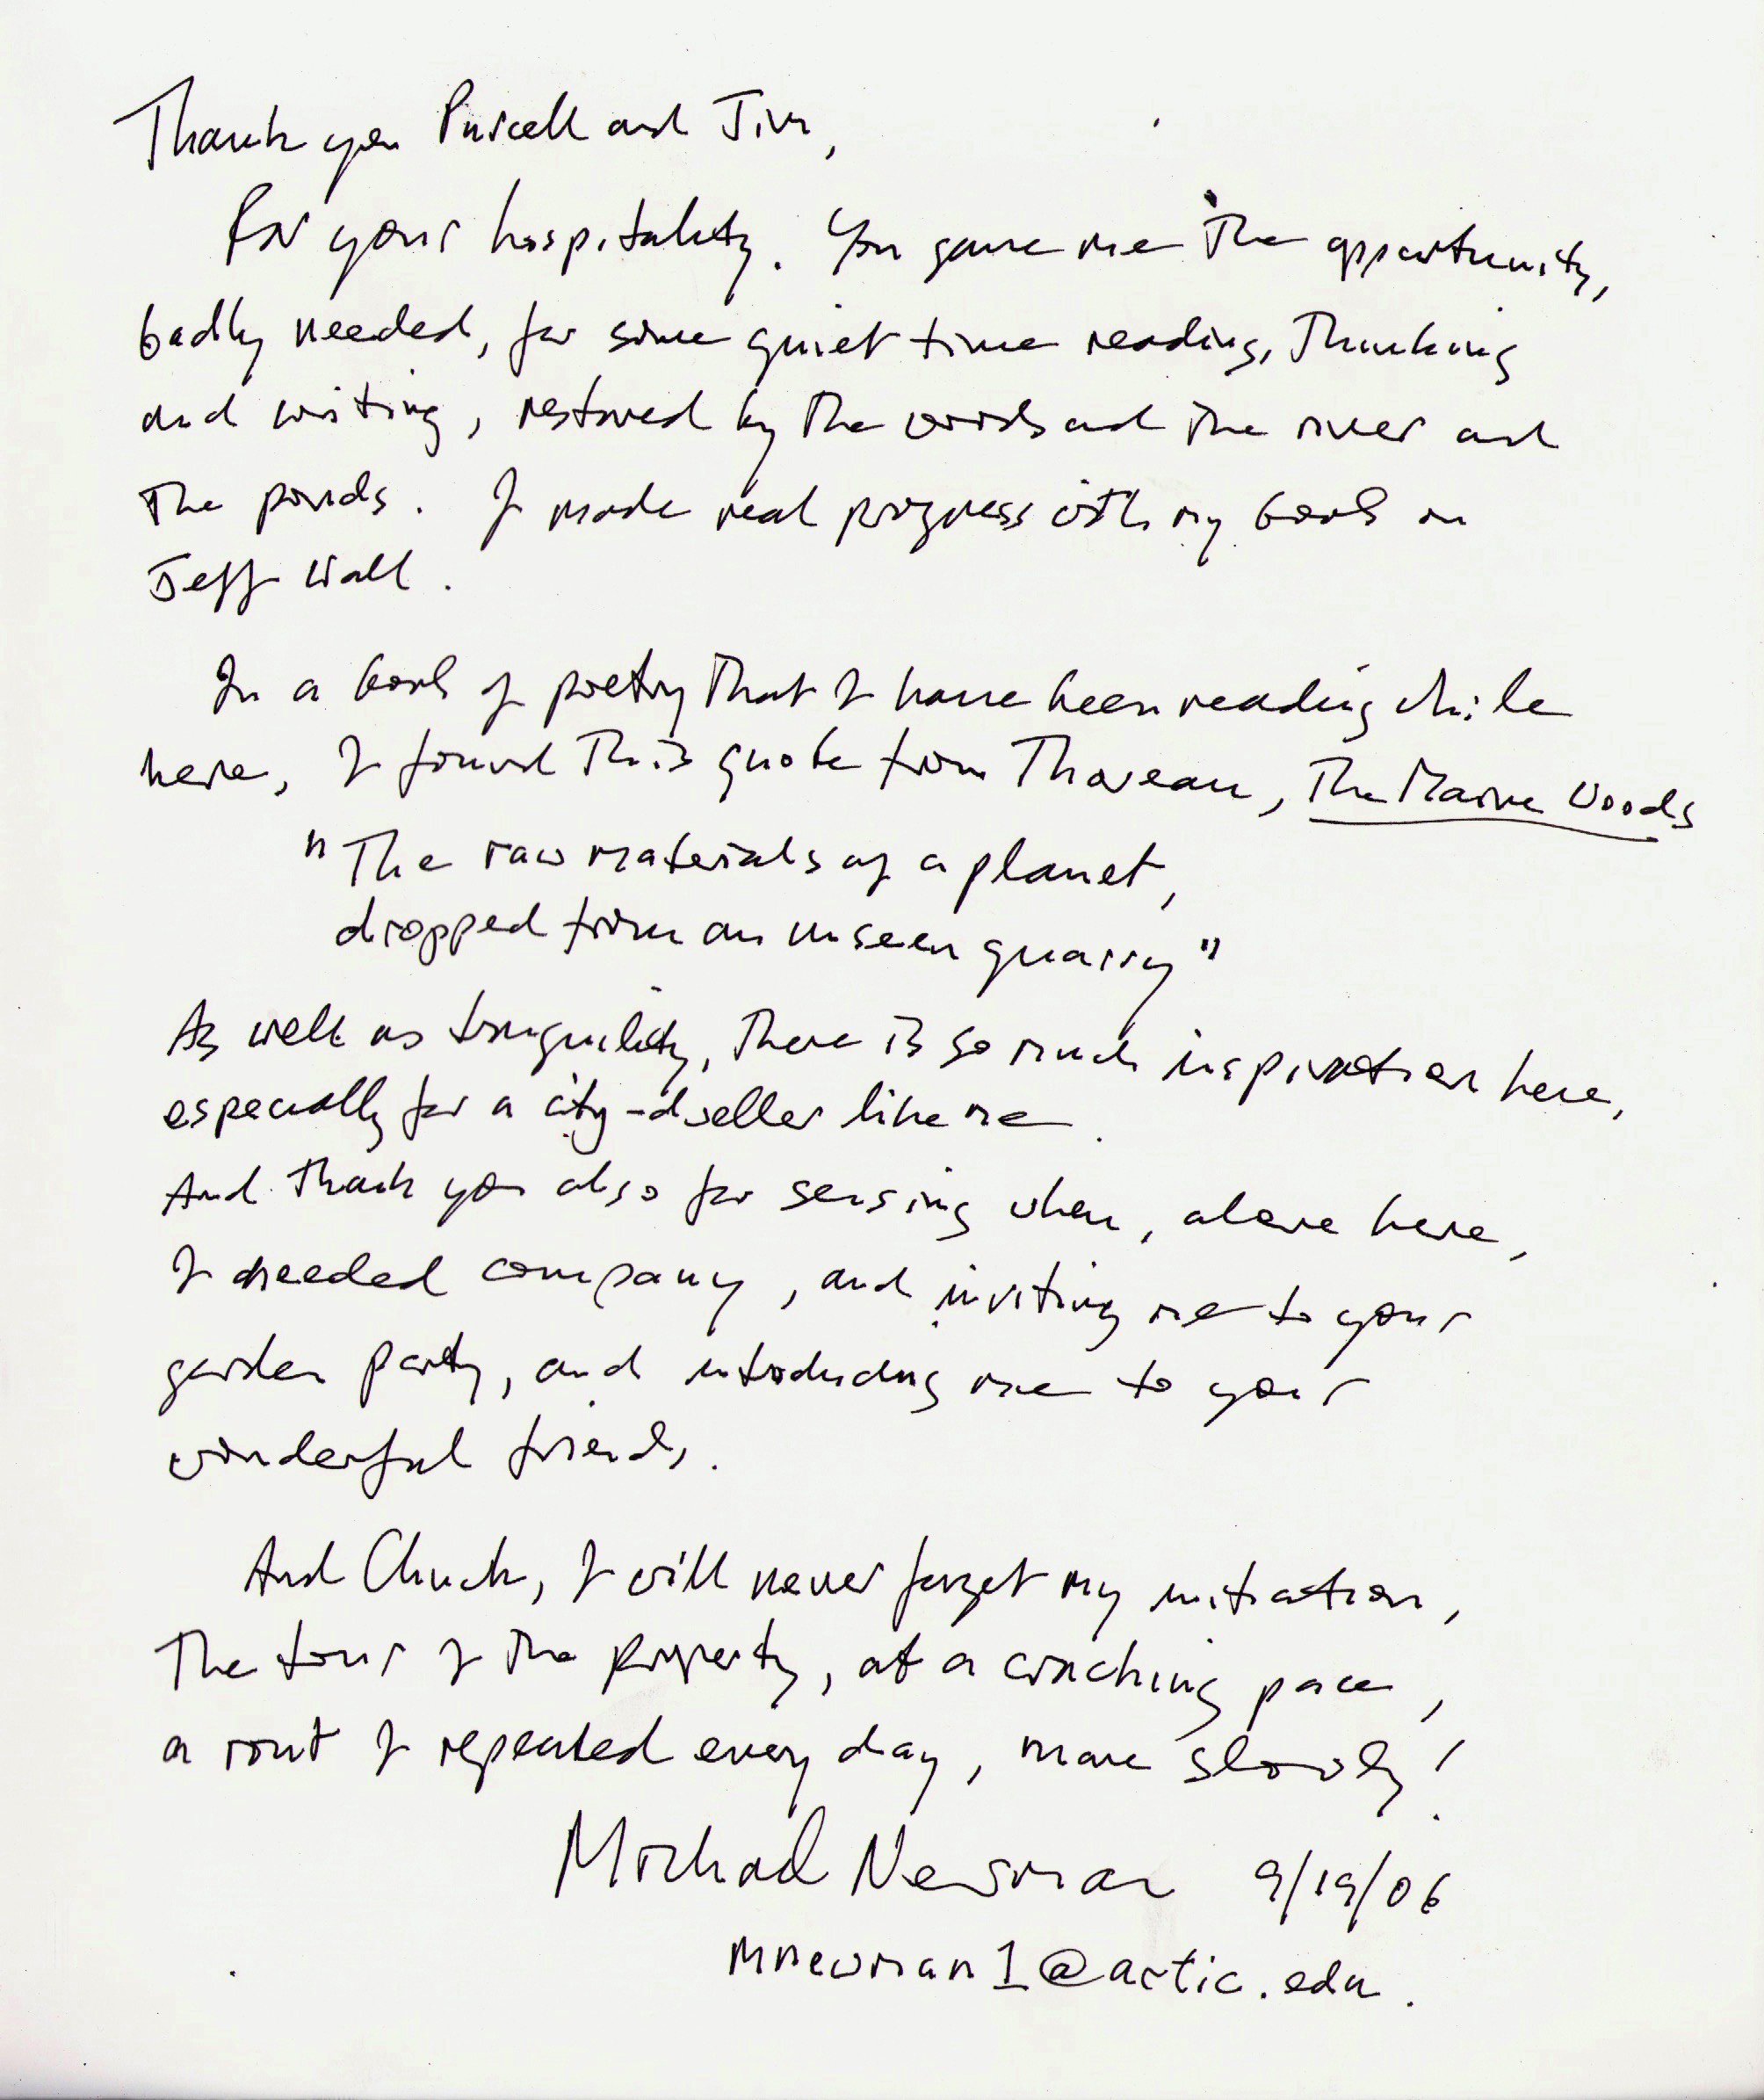 Thank you Purcell and Jim,
for your hospitality. You gave me the opportunity,
badly needed, for some quiet time reading, thinking
and writing, restored by the woods and the river and
the ponds. I made real progress with my book on
Jeff Wall.
In a book of poetry that I have been reading while
here, I found this quote from Thoreau, The Maine Woods
"The raw materials of a planet,
dropped from an unseen quarry"
As well as tranquility, there is so much inspiration here,
especially for a city-dweller like me.
And thank you also for sensing when, alone here,
I needed company, and inviting me to your
garden party, and introducing me to your
wonderful friends.
And Chuck, I will never forget my initiation,
the tour of the property, at a coaching pace,
a rout I repeated every day, more slowly!
Michael Newman 9/19/06
mnewman1@artic.edu.